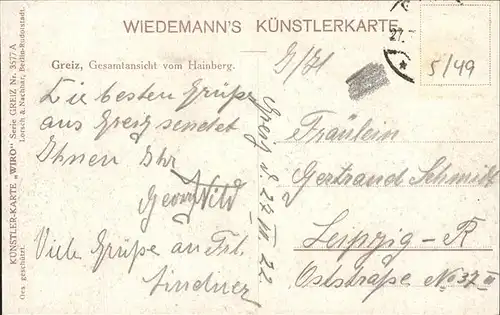 WIEDEMANN'S KÜNSTLERKARTE
Greiz, Gesamtansicht vom Hainberg.
KÜNSTLER-KARTE „WIRO“ Serie GREIZ Nr. 3577 A
Ges. geschützt. Lorsch & Nachbar, Berlin-Rudolstadt.
27.
5/49
Die besten Grüße
aus Greiz sendet
Ihnen Ihr
Georg Wild
Viele Grüße an Frl.
Lindner
Greiz d. 27. VI. 22
Fräulein
Gertraud Schmidt
Leipzig - R
Oststraße No 37 III